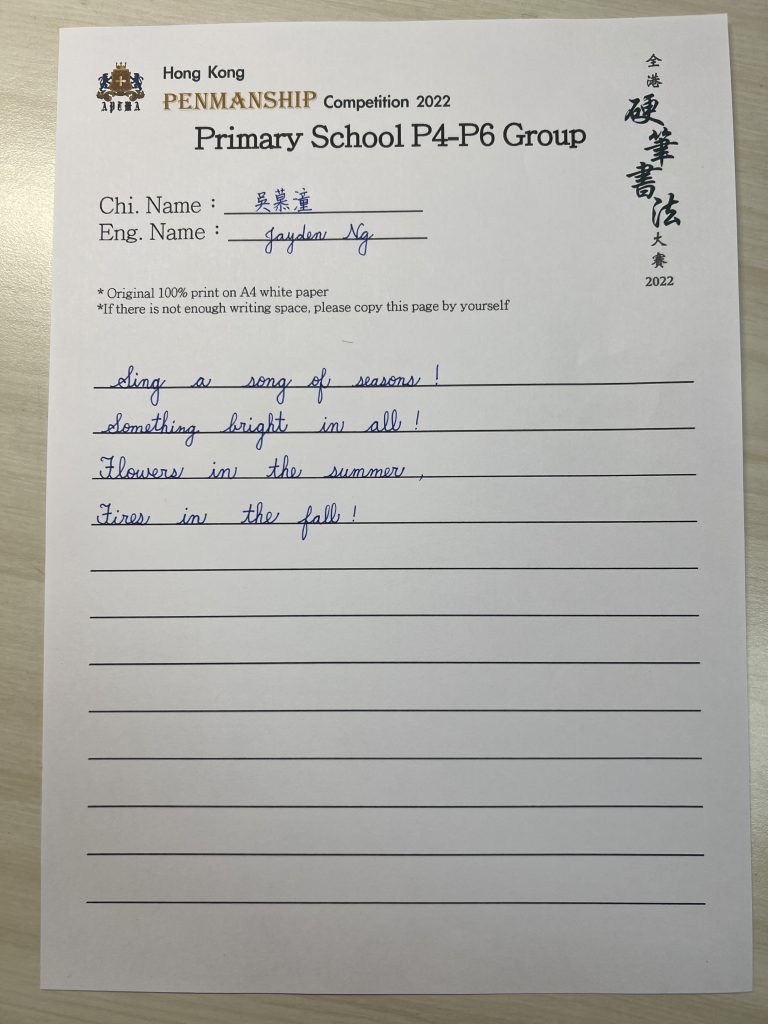 Hong Kong
PENMANSHIP Competition 2022
Primary School P4-P6 Group
APEMA
全港硬筆書法大賽
2022
Chi. Name : 吳慕潼
Eng. Name : Jayden Ng
* Original 100% print on A4 white paper
*If there is not enough writing space, please copy this page by yourself
Sing a song of seasons !
Something bright in all !
Flowers in the summer ,
Fires in the fall !